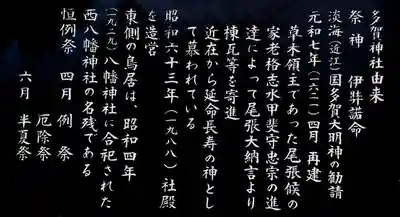 多賀神社由来
祭神　伊弉諾命
淡海(近江)国多賀大明神の勧請
元和七年(一六二一)四月　再建
草木領主であった尾張候の
家老格志水甲斐守忠宗の進
達によって尾張大納言より
棟瓦等を寄進
近在から延命長寿の神とし
て慕われている
昭和六十三年(一九八八)社殿
を造営
東側の鳥居は、昭和四年
(一九二九)八幡神社に合祀された
西八幡神社の名残である
恒例祭　四月　例　祭
厄除祭
六月　半夏祭